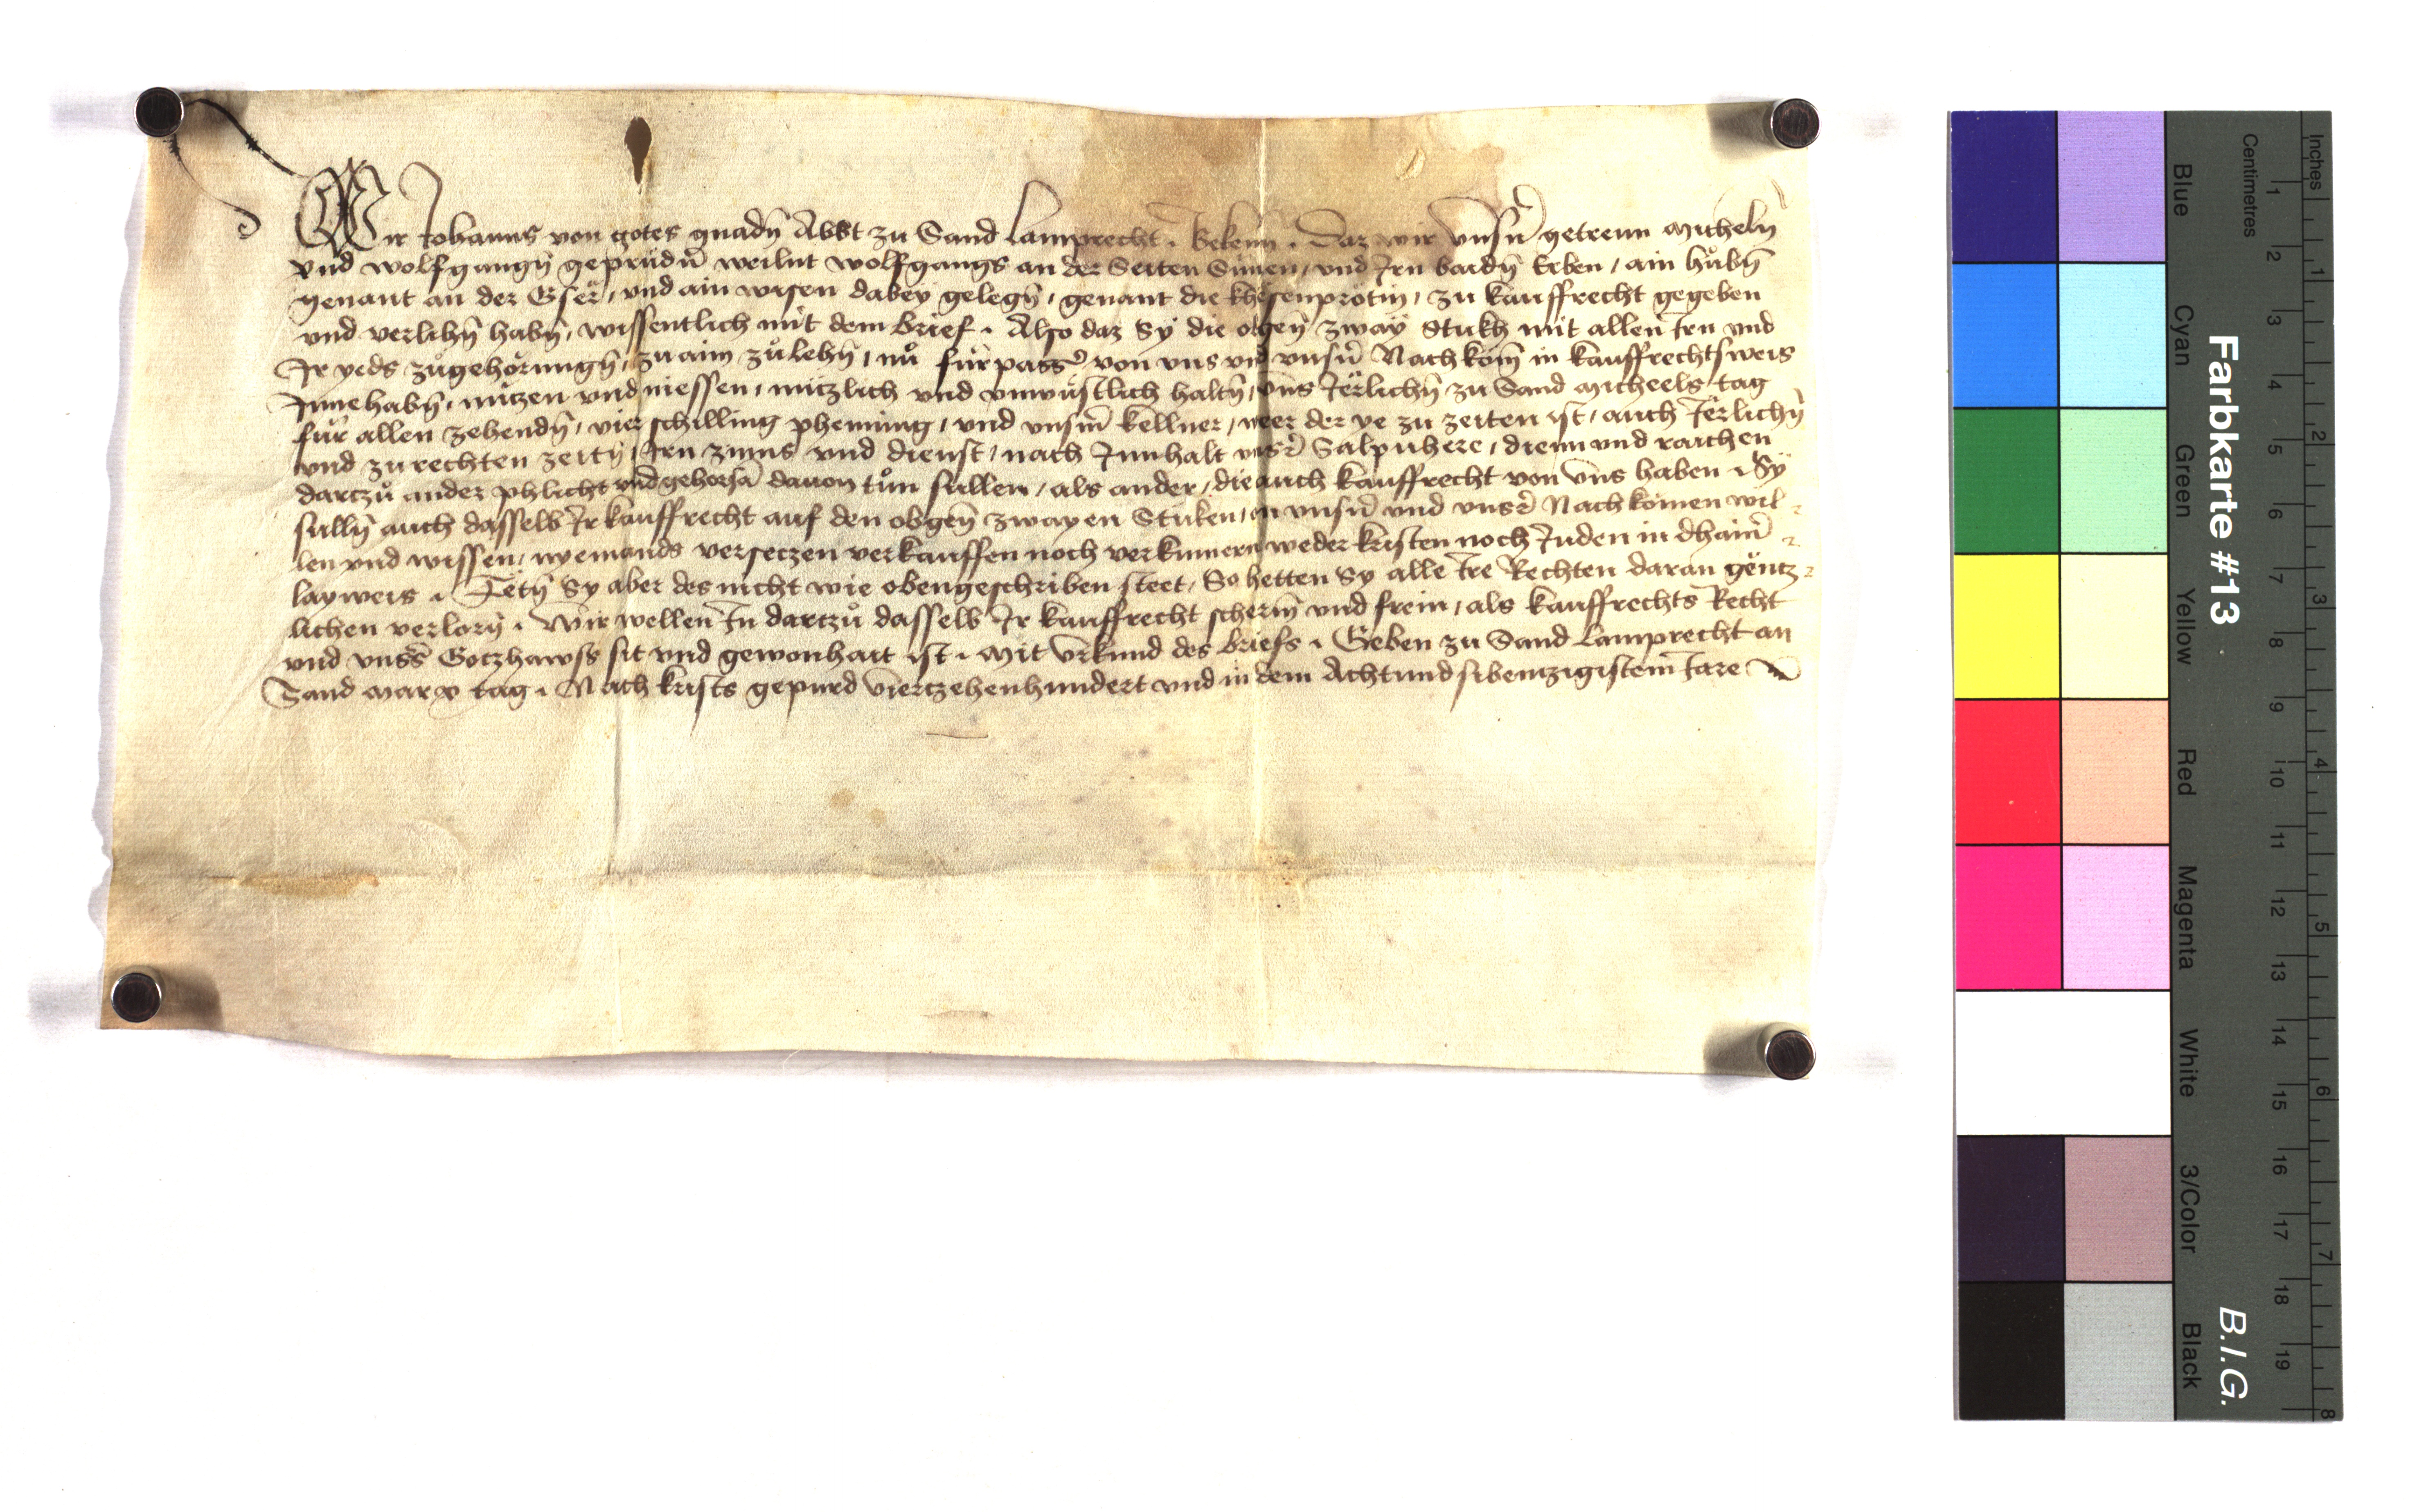 Wir Johanns von gotes gnadn̄ Abbt zu Sand Lamprecht . Bekenn̄ . Daz wir vnsn̄ getrewn Micheln
vnd wolfgangn̄ geprüdn̄ weilnt wolfgangs an der Seiten Sünen / vnd Irn baidn̄ Erben / ain hůbn̄
genant an der Gser / vnd ain wisen dabey gelegn̄ / genant die khesenprötin / zu kauffrecht gegeben
vnd verlihn̄ habn̄ / wissentlich mit dem brief . Also daz Sy die obgen̄ zway Stukh mit allen Irn vnd
Ir yeds zůgehörungn̄ / zu aim zůlehn̄ / nů fürpasser von vns vnd vnsn̄ Nachkom̄ in kauffrechtsweis
Innehabn̄ / nützen vnd niessen / nützlich vnd vnwüstlich haltn̄ / vns Jerlichn̄ zu Sand Micheels tag
für allen zehendn̄ / vier schilling phenning / vnd vnsm̄ kellner / weer der ye zu zeiten ist / auch Jerlichn̄
vnd zu rechten zeitn̄ / Irn zinns vnd dienst / nach Innhalt vnsr̄ Salpuhere / dienn vnd raichen
dartzů ander phlicht vnd gehorsā dauon tůn sullen / als ander / die auch kauffrecht von vns haben . Sy
sulln̄ auch dasselb Ir kauffrecht auf den obgen̄ zwayen Stuken / an vnsn̄ vnd vnsr̄ Nachkomen wil-
len vnd wissen / nyemands versetzen verkauffen noch verkumern weder kristen noch Juden in dhainr̄-
layweis . Tetn̄ Sy aber des nicht wie obengeschriben steet / So hetten Sy alle Ire Rechten daran gentz-
lichen verlorn̄ . Wir wellen In dartzů dasselb Ir kauffrecht scherm̄ vnd frein / als kauffrechts Recht
vnd vnsers Gotzhawss sit vnd gewonhait ist . Mit vrkund des briefs . Geben zu Sand Lamprecht an
Sand Marx tag . Nach krists gepurd viertzehenhundert vnd in dem Achtundsibentzigistem Jare
Farbkarte #13
B.I.G.
Inches 1 2 3 4 5 6 7 8
Centimetres 1 2 3 4 5 6 7 8 9 10 11 12 13 14 15 16 17 18 19
Blue
Cyan
Green
Yellow
Red
Magenta
White
3/Color
Black